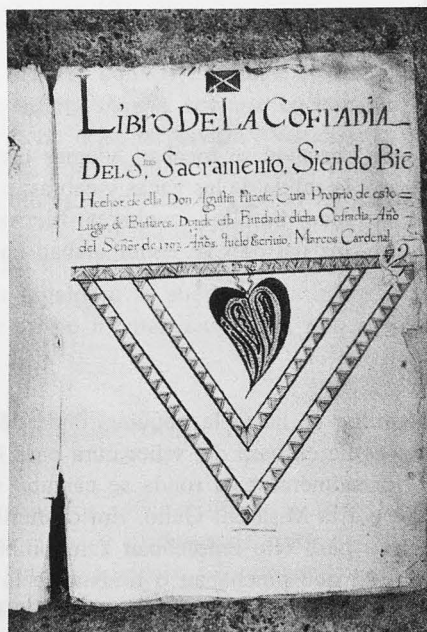 LIBRO DE LA COFRADIA
DEL S.mo Sacramento, Siendo Biē
Hechor de ella Don Agustin Vicente, Cura Proprio de este
Lugar de Bustares. Donde está Fundada dicha Cofradia, Año
del Señor de 1703 Años. Marcos Cardenal